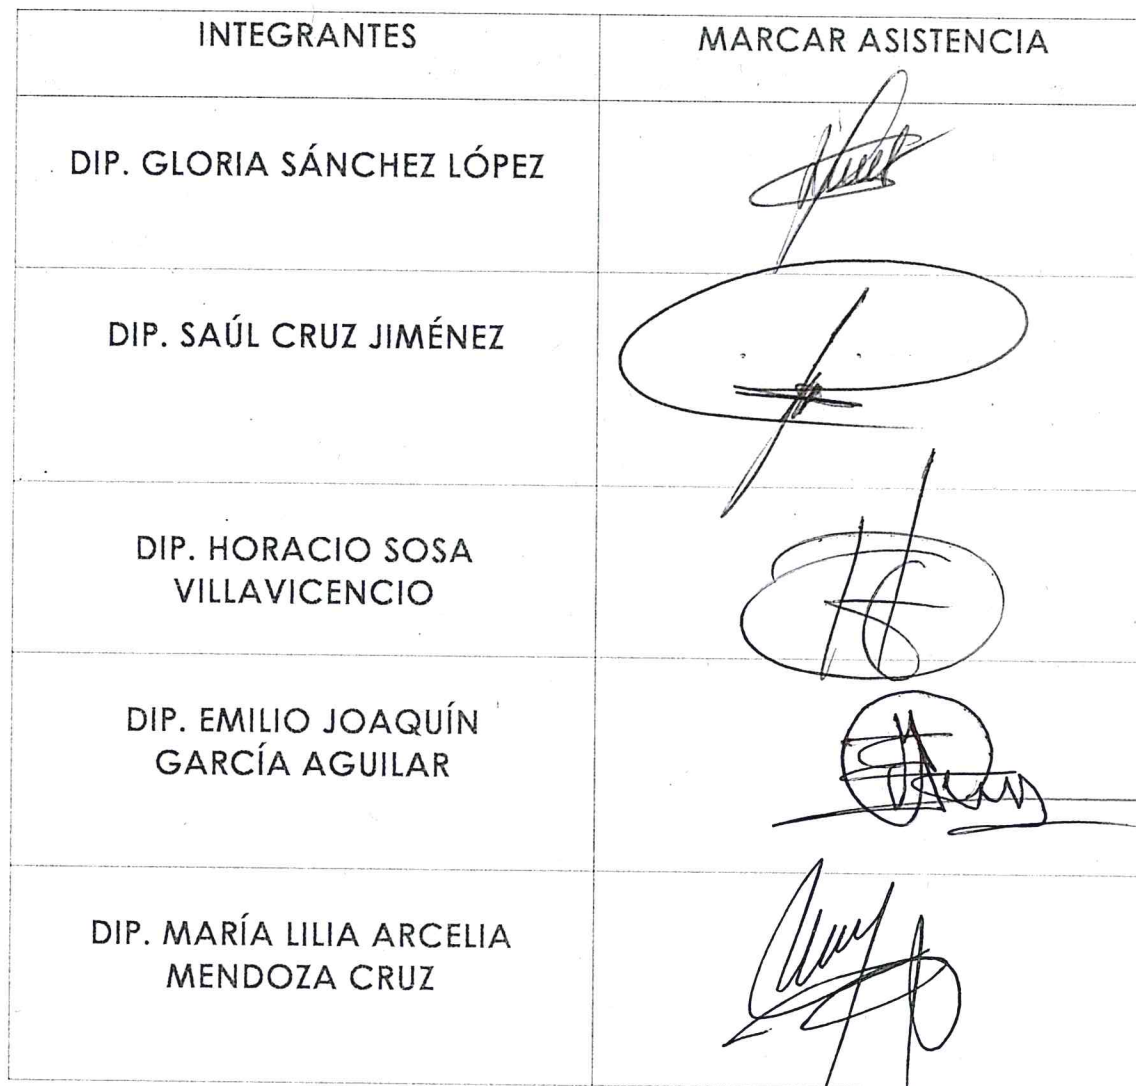 INTEGRANTES
MARCAR ASISTENCIA
DIP. GLORIA SÁNCHEZ LÓPEZ
DIP. SAÚL CRUZ JIMÉNEZ
DIP. HORACIO SOSA
VILLAVICENCIO
DIP. EMILIO JOAQUÍN
GARCÍA AGUILAR
DIP. MARÍA LILIA ARCELIA
MENDOZA CRUZ